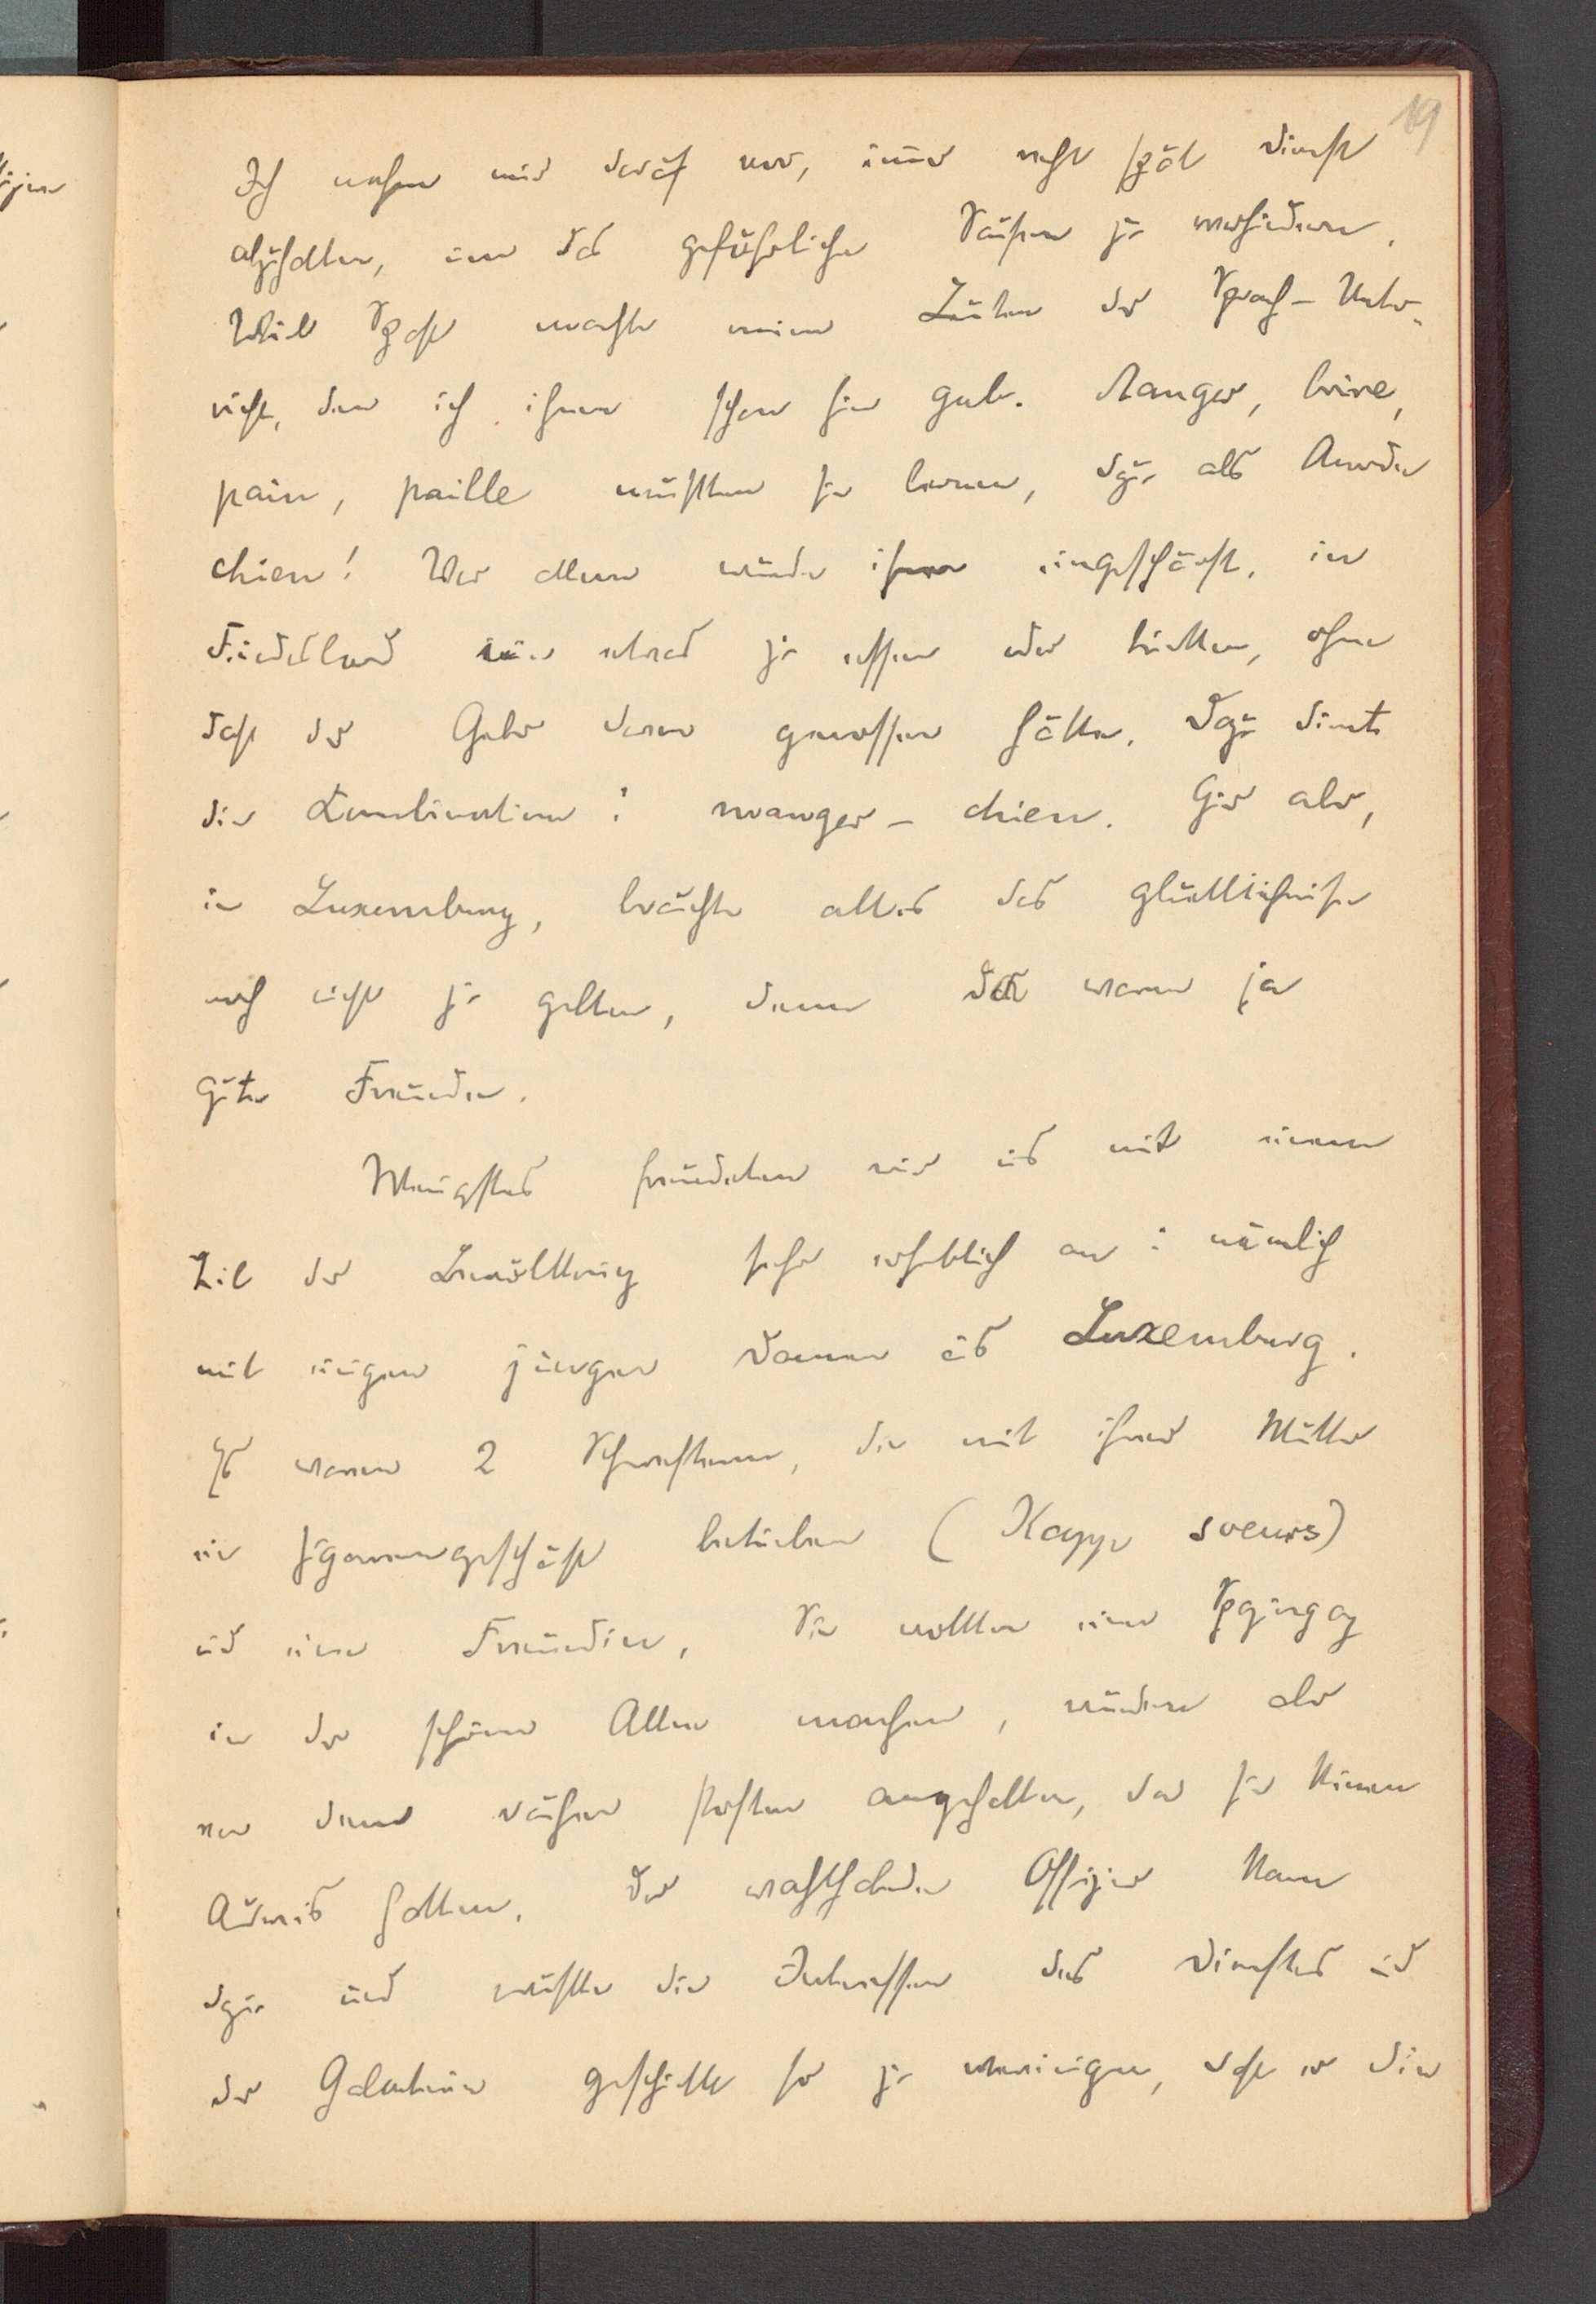 19
Ich nahm mir darauf vor, immer recht spät Dienst
abzuhalten, um das gefährliche Saufen zu verhindern.
Viel Spaß machte meinen Leuten der Sprach-Unter-
richt, den ich ihnen schon hier gab. Manger, boire,
pain, paille mußten sie lernen, dazu als Anrede
chien! Vor allem wurde ihnen eingeschärft, in
Feindesland nie etwas zu essen oder trinken, ohne
daß der Geber davon genossen hätte. Dazu diente
die Kombination: manger - chien. Hier aber,
in Luxemburg, brauchte alles das glücklicherweise
noch nicht zu gelten, denn das waren ja
gute Freunde.
Wenigstens freundeten wir uns mit einem
Teil der Bevölkerung sehr erheblich an: nämlich
mit einigen jungen Damen aus Luxemburg.
Es waren 2 Schwestern, die mit ihrer Mutter
ein Zigarrengeschäft betrieben (Kapp soeurs)
und eine Freundin. Sie wollten einen Spaziergang
in der schönen Allee machen, wurden aber
von dem äußeren Posten angehalten, da sie keinen
Ausweis hatten. Der wachthabende Offizier kam
dazu und wußte die Interessen des Dienstes und
der Galanterie geschickt so zu vereinigen, daß er die